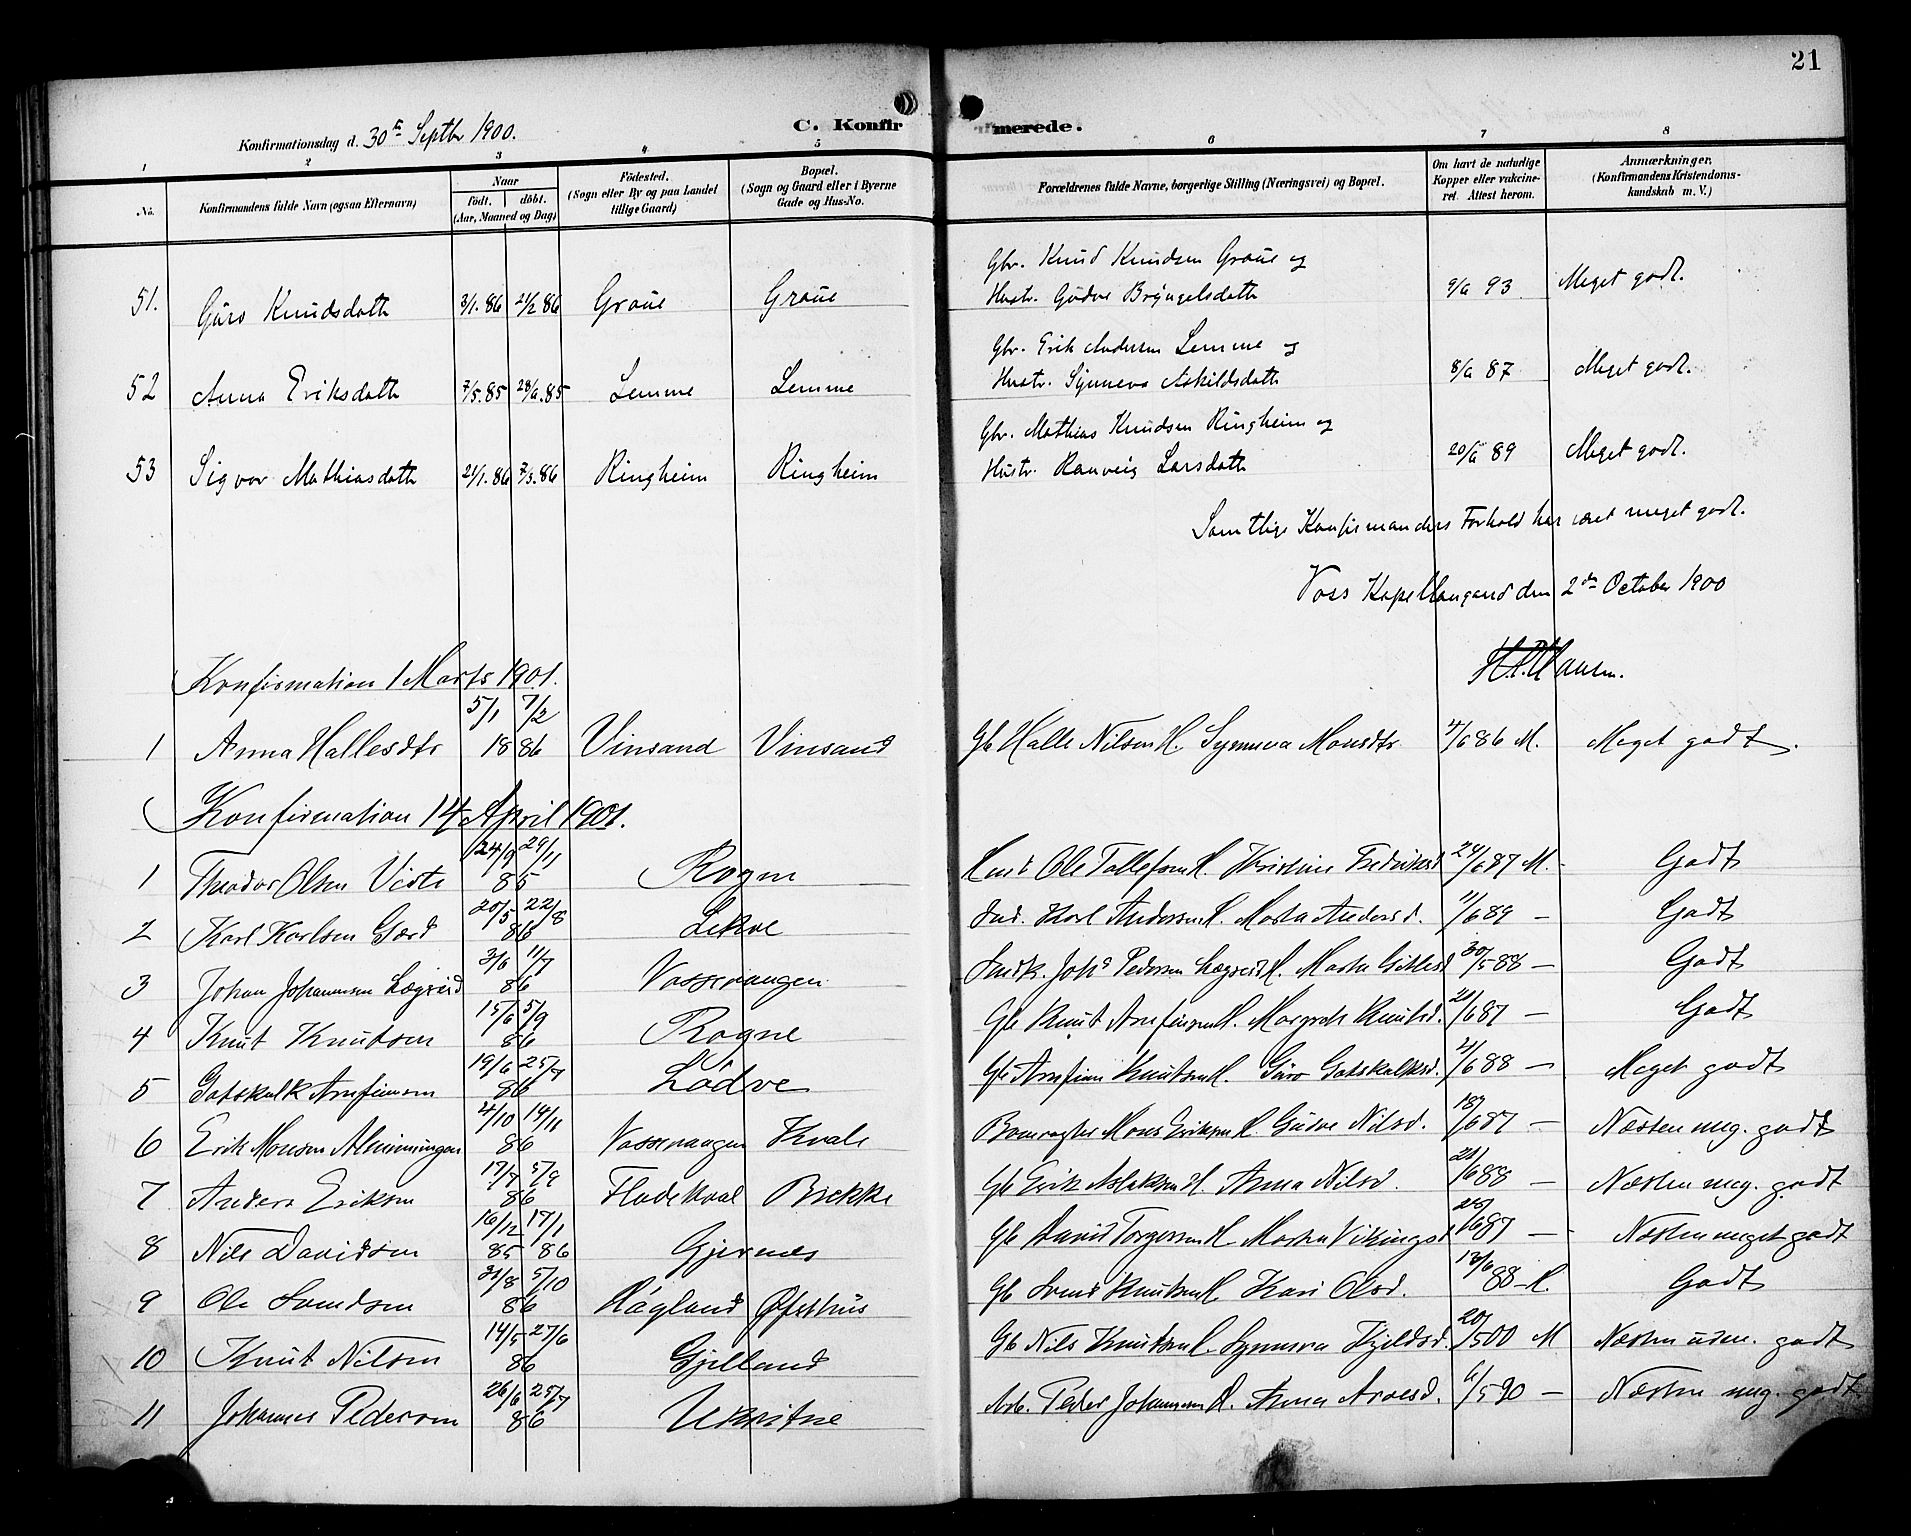 21
Konfirmationsdag d. 30te Septbr 1900.
C. Konfirmerede.
1 2 3 4 5 6 7 8
No. Konfirmandens fulde Navn (ogsaa Efternavn) Naar født. døbt. (Aar, Maaned og Dag) Fødested. (Sogn eller By og paa Landet tillige Gaard) Bopæl. (Sogn og Gaard eller i Byerne Gade og Hus-No. Forældrenes fulde Navne, borgerlige Stilling (Næringsvei) og Bopæl. Om havt de naturlige Kopper eller vaccineret. Attest herom. Anmærkninger. (Konfirmandens Kristendomskundskab m. V.)
Gbr. Knud Knudsen Graue og
51. Guro Knudsdatte 3/1.86 21/2 86 Graue Graue Hustr. Gudve Bryngelsdatte 9/6 93 Meget godt.
Gbr. Erik Andersen Lemme og
52 Anna Eriksdatte 7/5.85 28/6.85 Lemme Lemme Hustr. Synneva Askildsdatte 8/6 87 Meget godt.
Gbr. Mathias Knudsen Ringheim og
53 Sigvor Mathiasdatte 21/1.86 7/3.86 Ringheim Ringheim Hustr. Ranveig Larsdatte 20/6 89 Meget godt.
Samtlige Konfirmanders Forhold har været meget godt.
Voss Kapellangaard den 2den October 1900
Konfirmation 1 Marts 1901.
5/1 7/2
1 Anna Hallesdtr 18 86 Vinsand Vinsand Gb Halle Nilsen H. Synneva Monsdtr 4/6 86 M. Meget godt.
Konfirmation 14 April 1901.
24/9 29/11
1 Theodor Olsen Viste 85 Rogne Ole Tollefsen H. Kristine Fredriksd 24/6 87 M. Godt
20/5 22/8
2 Karl Karlsen Gærd 86 Lekve Ind. Karl Andersen H. Marta Andersd. 11/6 89 — Godt
3/6 11/7
3 Johan Johannesen Lægreid 86 Vossevangen Johs Pedersen Lægreid H. Marta 30/5 88 — Godt
15/6 5/9
4 Knut Knutsen 86 Rogne Gb Knut Arnfinsen H. Margrete Knutsd. /6 87 — Godt
19/6 25/7
5 Gotskalk Arnfinsen 86 Lødve Gb Arnfinn Knutsen H. Guro Gotskalksd. /6 88 — Meget godt
4/10 14/11
6 Erik Monsen Almenningen 86 Vossevangen Kvale Mons Eriksen H. Gudve Nilsd. 18/6 87 — Næsten meg. godt
17/7 5/9
7 Anders Eriksen 86 Fladekval Brekke Gb Erik Aslaksen H Anna Nilsd. /6 88 — Næsten meg. godt
16/12 17/1
8 Nils Davidsen 85 86 Gjernes Gb David Torgersen H Marta Vikingsd /6 87 — Næsten meget godt
31/8 5/10
9 Ole Svendsen 86 Høgland Øfsthus Gb Svend Knutsen H Kari Olsd. 13/6 88 — M. Godt
14/5 27/6
10 Knut Nilsen 86 Gjelland Gb Nils Knutsen H. Synneva Kjeldsd. 20/5 00 M Næsten uden. godt
26/6 25/7
11 Johannes Pedersen 86 Ukvitne Arb. Peder Johannesen H. Anna Arvesd. 6/5 90 — Næsten meg. godt